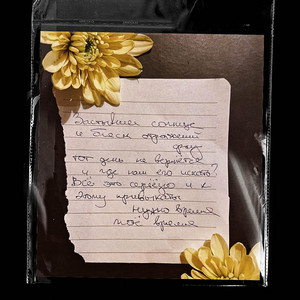 Застывшее солнце
и блеск отражений
тот день не вернется
и где нам его искать?
Всё это серьезно и к
этому привыкать
нужно время
моё время